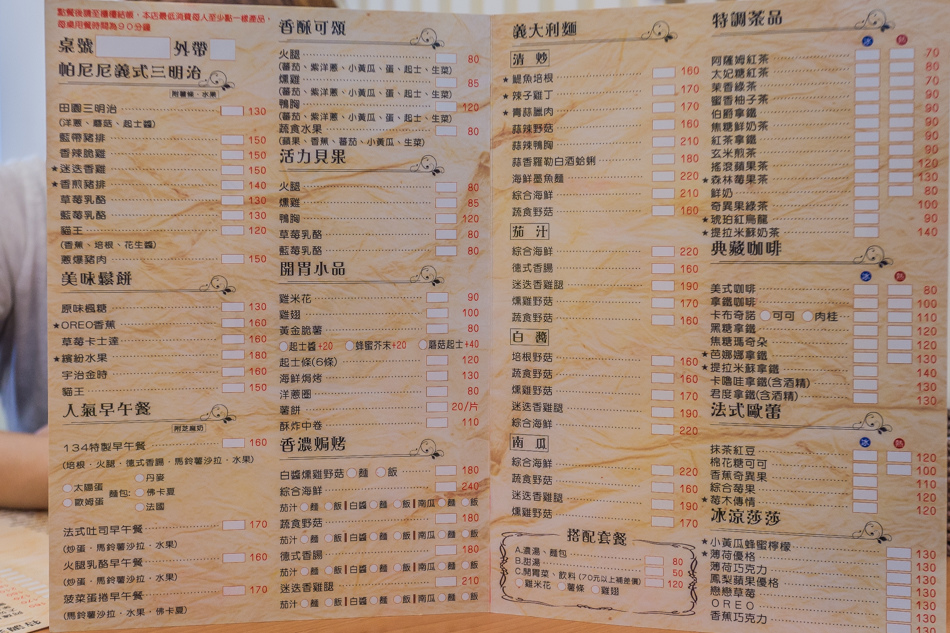 點餐後請至櫃檯結帳，本店最低消費每人至少點一樣產品，
每桌用餐時間為90分鐘
桌號 外帶
帕尼尼義式三明治
附薯條、水果
田園三明治 130
(洋蔥、蘑菇、起士醬)
藍帶豬排 150
香辣脆雞 150
★迷迭香雞 150
★香煎豬排 140
草莓乳酪 130
藍莓乳酪 130
貓王 120
(香蕉、培根、花生醬)
蔥爆豬肉 150
美味鬆餅
原味楓糖 130
★OREO香蕉 160
草莓卡士達 160
★繽紛水果 180
宇治金時 160
貓王 150
人氣早午餐
附芝麻奶
134特製早午餐 160
(培根、火腿、德式香腸、馬鈴薯沙拉、水果)
太陽蛋 歐姆蛋 麵包: 丹麥 佛卡夏 法國
法式吐司早午餐 170
(炒蛋、馬鈴薯沙拉、水果)
火腿乳酪早午餐 160
(炒蛋、馬鈴薯沙拉、水果)
菠菜蛋捲早午餐 170
(馬鈴薯沙拉、水果、佛卡夏)
香酥可頌
火腿 80
(蕃茄、紫洋蔥、小黃瓜、蛋、起士、生菜)
燻雞 85
(蕃茄、紫洋蔥、小黃瓜、蛋、起士、生菜)
鴨胸 120
(蕃茄、紫洋蔥、小黃瓜、蛋、起士、生菜)
蔬食水果 80
(蘋果、香蕉、蕃茄、小黃瓜、生菜)
活力貝果
火腿 80
燻雞 85
鴨胸 120
草莓乳酪 80
藍莓乳酪 80
開胃小品
雞米花 90
雞翅 100
黃金脆薯 80
起士醬+20 蜂蜜芥末+20 蘑菇起士+40
起士條(6條) 120
海鮮焗烤 130
洋蔥圈 80
薯餅 20/片
酥炸中卷 110
香濃焗烤
白醬燻雞野菇 麵 飯 180
綜合海鮮 240
茄汁 麵 飯 白醬 麵 飯 南瓜 麵 飯
蔬食野菇 180
茄汁 麵 飯 白醬 麵 飯 南瓜 麵 飯
德式香腸 180
茄汁 麵 飯 白醬 麵 飯 南瓜 麵 飯
迷迭香雞腿 210
茄汁 麵 飯 白醬 麵 飯 南瓜 麵 飯
義大利麵
清炒
★鯷魚培根 160
★辣子雞丁 170
★青蒜臘肉 170
蒜辣野菇 160
蒜辣鴨胸 210
蒜香羅勒白酒蛤蜊 180
海鮮墨魚麵 220
綜合海鮮 210
蔬食野菇 160
茄汁
綜合海鮮 220
德式香腸 160
迷迭香雞腿 190
燻雞野菇 170
蔬食野菇 160
白醬
培根野菇 160
蔬食野菇 160
燻雞野菇 170
迷迭香雞腿 190
綜合海鮮 220
南瓜
綜合海鮮 220
蔬食野菇 160
迷迭香雞腿 190
燻雞野菇 170
搭配套餐
A.濃湯、麵包 80
B.甜湯 50
C.開胃菜、飲料 (70元以上補差價) 120
雞米花 薯條 雞翅
特調茶品
冰 熱
阿薩姆紅茶 70
太妃糖紅茶 80
茉香綠茶 70
蜜香柚子茶 90
伯爵拿鐵 90
焦糖鮮奶茶 90
紅茶拿鐵 90
玄米煎茶 90
搖滾蘋果茶 120
★森林莓果茶 130
鮮奶 80
奇異果綠茶 100
★琥珀紅烏龍 90
★提拉米蘇奶茶 140
典藏咖啡
冰 熱
美式咖啡 80
拿鐵咖啡 100
卡布奇諾 可可 肉桂 110
黑糖拿鐵 120
焦糖瑪奇朵 120
★芭娜娜拿鐵 130
★提拉米蘇拿鐵 140
卡嚕哇拿鐵(含酒精) 130
君度拿鐵(含酒精) 130
法式歐蕾
冰 熱
抹茶紅豆 120
棉花糖可可 100
香蕉奇異果 110
綜合莓果 120
★莓木傳情 120
冰涼莎莎
★小黃瓜蜂蜜檸檬 130
★薄荷優格 130
薄荷巧克力 130
鳳梨蘋果優格 130
戀戀草莓 130
OREO 130
香蕉巧克力 130